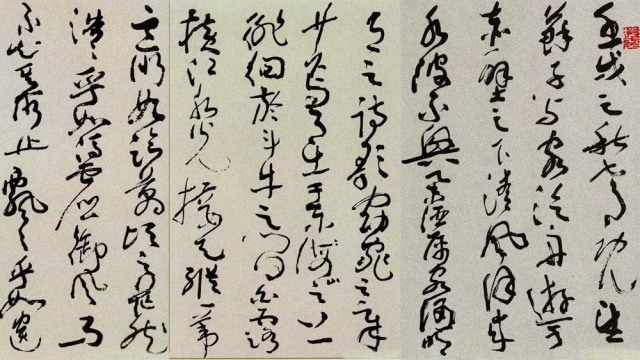 壬戌之秋七月既望
蘇子与客泛舟遊于
赤壁之下清風徐来
水波不興舉酒属客誦明
月之詩歌窈窕之章
少焉月出於東山之上
徘徊於斗牛之間白露
横江水光接天縱一葦
之所如凌萬頃之茫然
浩浩乎如馮虚御風而
不知其所止飄飄乎如遺